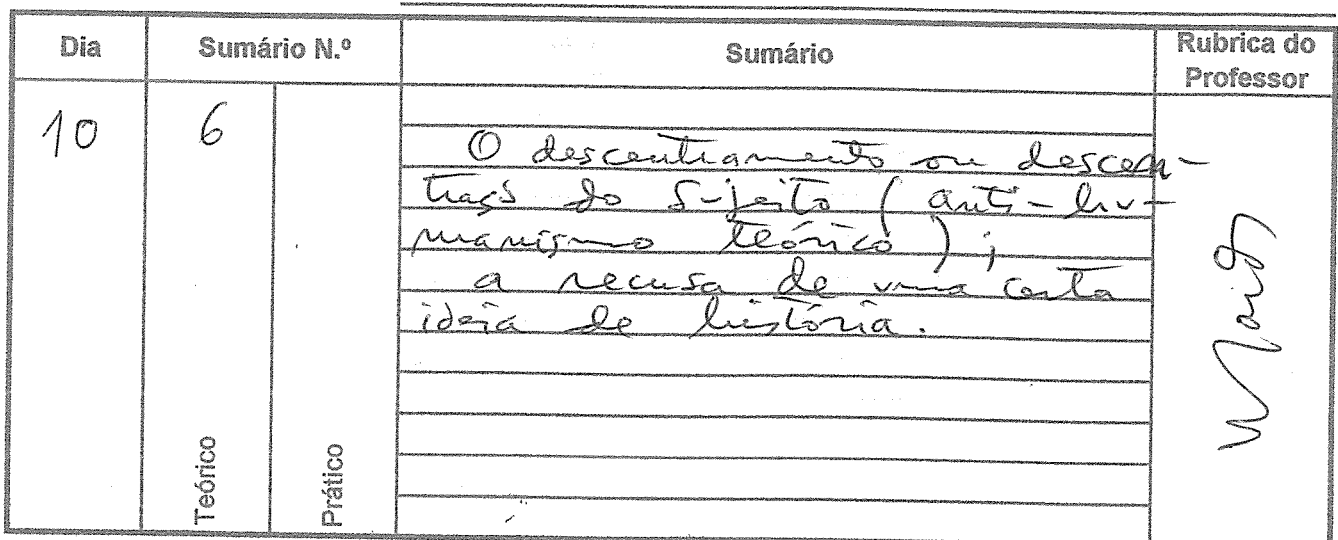 Dia Sumário N.º Sumário Rubrica do Professor
10 6
O descentramento ou descen-
tração do sujeito (anti-hu-
manismo teórico);
a recusa de uma certa
ideia de história.
Teórico Prático